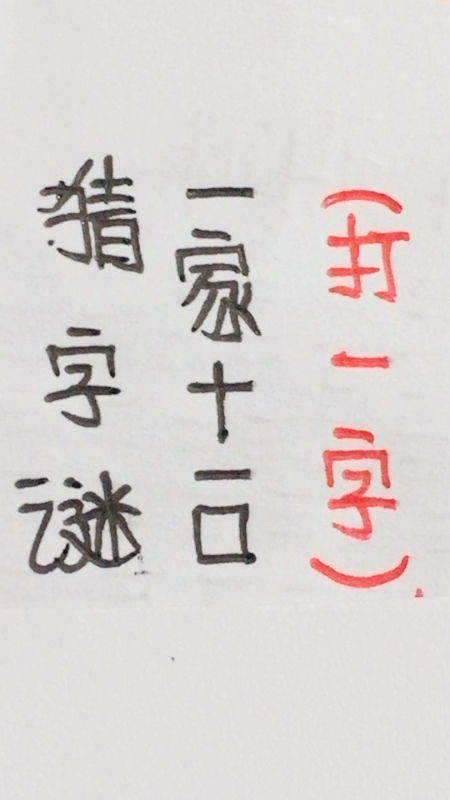 猜字谜
一家十一口
(打一字)